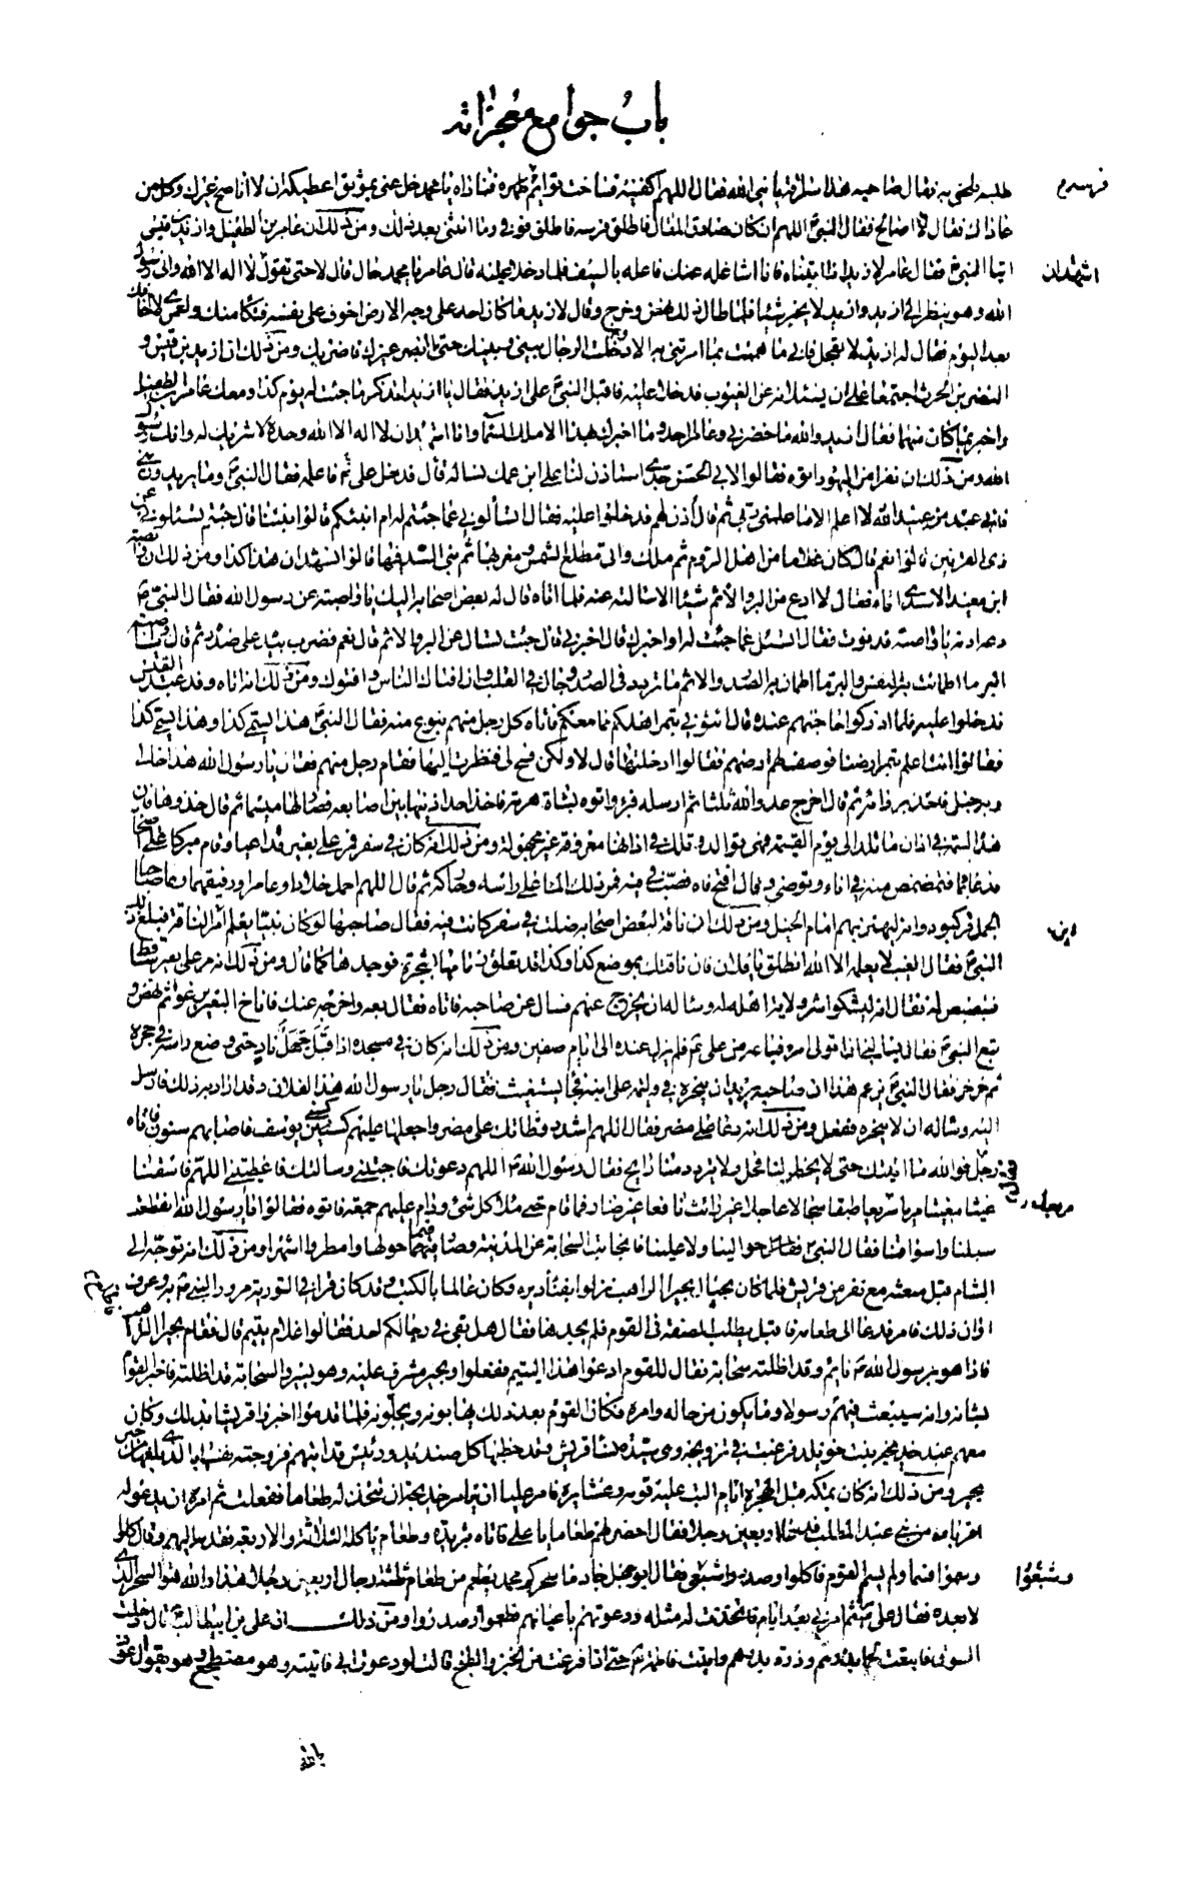 باب جوامع معجزاته
طلبه فلحق به فقال صاحبه هذا سراقة يا نبي الله فقال اللهم اكفنيه فساخت قوائم ظهره فناداه يا محمد خل عني بموثق اعطيكه ان لا اناصح غيرك وكل من
عاداك فقال لا اصالح فقال النبي اللهم ان كان صادق المقال فاطلق فرسه فاطلق فوفى وما انثنى بعد ذلك ومن ذلك ان عامر بن الطفيل وازيد بن قيس
اتيا النبي فقال عامر لازيد اذا اتيناه فانا اشاغله عنك فاعله بالسيف فلما دخلا عليه قال عامر يا محمد خال قال لا حتى تقول لا اله الا الله واني رسول
الله وهو ينظر الى ازيد وازيد لا يخبر شيئا فلما طال ذلك نهض وخرج وقال لازيد ما كان احد على وجه الارض اخوف على نفسه فتكا منك ولعمري لا اخافك
بعد اليوم فقال له ازيد لا تعجل فاني ما هممت بما امرتني به الا دخلت الرجال بيني وبينك حتى ما ابصر غيرك فاضربك ومن ذلك ان ازيد بن قيس و
النضر بن الحرث اجتمعا على ان يسئلانه عن الغيوب فدخلا عليه فاقبل النبي على ازيد فقال يا ازيد اتذكر ما جئت له يوم كذا ومعك عامر بن الطفيل
واخبر بما كان منهما فقال ازيد والله ما حضرني وعامرا احد وما اخبرك بهذا الا ملك السماء وانا اشهد ان لا اله الا الله وحده لا شريك له وانك رسول
الله ومن ذلك ان نفرا من اليهود اتوه فقالوا لابي الحسن جدي استاذن لنا على ابن عمك نساله قال فدخل علي ع فاعلمه فقال النبي وما يريدون مني
فاني عبد من عبيد الله لا اعلم الا ما علمني ربي ثم قال أذن لهم فدخلوا عليه فقال اتسألوني عما جئتم له ام انبئكم قالوا نبئنا قال جئتم تسئلوني عن
ذي القرنين قالوا نعم قال كان غلاما من اهل الروم ثم ملك واتى مطلع الشمس ومغربها ثم بنى السد فيها قالوا نشهد ان هذا كذا ومن ذلك ان وابصة
ابن معبد الاسدي اتاه فقال لا ادع من البر والاثم شيئا الا سالته عنه فلما اتاه قال له بعض اصحابه اليك يا وابصة عن رسول الله فقال النبي ص
دعوا وابصة فدنوت فقال اتسئل عما جئت له او اخبرك قال اخبرني قال جئت تسال عن البر والاثم قال نعم فضرب بيده على صدره ثم قال يا وابصة
البر ما اطمانت به النفس والبر ما اطمان به الصدر والاثم ما تردد في الصدر وجال في القلب وان افتاك الناس وافتوك ومن ذلك انه اتاه وفد عبد القيس
فدخلوا عليه فلما ادركوا حاجتهم عنده قال ائتوني بتمر اهلكم مما معكم فاتاه كل رجل منهم بنوع منه فقال النبي هذا يسمى كذا وهذا يسمى كذا
فقالوا انت اعلم بتمر ارضنا فوصف لهم ارضهم فقالوا ادخلتها قال لا ولكن فسح لي فنظرت اليها فقام رجل منهم فقال يا رسول الله هذا خالي
وبه خبل فاخذ بردائه ثم قال اخرج عدو الله ثلثا ثم ارسله فبرأ واتوه بشاة هرمة فاخذ احد اذنيها بين اصابعه فصار لها ميسما ثم قال خذوها فان
هذا السمة في اذان ما تلد الى يوم القيمة فهي توالد وتلك في اذانها معروفة غير مجهولة ومن ذلك انه كان في سفر فمر على بعير قد اعيا وقام مبركا على اصحابه
فدعا بماء فتمضمض منه في اناء وتوضى وقال افتح فاه فصب في فيه فمر ذلك الماء على راسه وحاركه ثم قال اللهم احمل خلادا وعامرا ورفيقهما وهما صاحبا
الجمل فركبوه وانه ليهتز بهم امام الخيل ومن ذلك ان ناقة لبعض اصحابه ضلت في سفر كانت فيه فقال صاحبها لو كان نبيا يعلم امر الناقة فبلغ ذلك
النبي فقال الغيب لا يعلمه الا الله انطلق يا فلان فان ناقتك بموضع كذا وكذا قد تعلق زمامها بشجرة فوجدها كما قال ومن ذلك انه مر على بعير ساقط
فتبصبص له فقال انه ليشكو شر ولاية اهله له وساله ان يخرج عنهم فسال عن صاحبه فاتاه فقال بعه واخرجه عنك فاناخ البعير يرغو ثم نهض و
تبع النبي فقال يسالني ان اتولى امره فباعه من علي ع فلم يزل عنده الى ايام صفين ومن ذلك انه كان في مسجده اذ اقبل جمل ناد حتى وضع راسه في حجره
ثم خرخر فقال النبي يزعم هذا ان صاحبه يريد ان ينحره في وليمة على ابنه فجاء يستغيث فقال رجل يا رسول الله هذا لفلان وقد اراد به ذلك فارسل
اليه وساله ان لا ينحره ففعل ومن ذلك انه دعا على مضر فقال اللهم اشدد وطاتك على مضر واجعلها عليهم كسنين يوسف فاصابهم سنون فاتاه
رجل فقال فوالله ما اتيتك حتى لا يخطر لنا فحل ولا يتردد منا رايح فقال رسول الله ص اللهم دعوتك فاجبتني وسالتك فاعطيتني اللهم فاسقنا
غيثا مغيثا مريئا سريعا طبقا سجالا عاجلا غير رائث نافعا غير ضار فما قام حتى ملأ كل شئ ودام عليهم جمعة فاتوه فقالوا يا رسول الله انقطعت
سبلنا واسواقنا فقال النبي ص حوالينا ولا علينا فانجابت السحابة عن المدينة وصار فيما حولها وامطروا شهرا ومن ذلك انه توجه الى
الشام قبل مبعثه مع نفر من قريش فلما كان بحيال بحيرا الراهب نزلوا بفناء ديره وكان عالما بالكتب وقد كان قرا في التورية مرور النبي ص به وعرف
اوان ذلك فامر فدعا الى طعامه فاقبل يطلب الصفة في القوم فلم يجدها فقال هل بقي في رحالكم احد فقالوا غلام يتيم قال فقام بحيرا الراهب
فاذا هو برسول الله ص نايم وقد اظلته سحابة فقال للقوم ادعوا هذا اليتيم ففعلوا وبحيرا مشرف عليه وهو يسير والسحابة قد اظلته فاخبر القوم
بشانه وانه سيبعث فيهم رسولا وما يكون من حاله وامره فكان القوم بعد ذلك يهابونه ويجلونه فلما قدموا اخبروا قريشا بذلك وكان
معهم عبد خديجة بنت خويلد فرغبت في تزويجه وهي سيدة نساء قريش وقد خطبها كل صنديد ورئيس قد ابتهم فزوجته نفسها بالذي بلغها من خبر
بحيرا ومن ذلك انه كان بمكة قبل الهجرة ايام البت عليه قومه وعشايره فامر عليا ان يامر خديجة ان تتخذ له طعاما ففعلت ثم امره ان يدعو له
اقرباءه من بني عبد المطلب فدعا اربعين رجلا فقال احضر لهم طعاما يا علي فاتاه بثريدة وطعام ياكله الثلثة والاربعة فقدمه اليهم وقال كلوا
وسموا فسما ولم يسم القوم فاكلوا وصدروا شبعى فقال ابو جهل جاد ما سحركم محمد يطعم من طعام ثلثة رجال اربعين رجلا هذا والله هو السحر الذي
لا بعده فقال علي ع ثم امرني بعد ايام فاتخذت له مثله ودعوتهم باعيانهم فطعموا وصدروا ومن ذلك ان علي بن ابيطالب ع قال دخلت
السوق فابتعت لحما بدرهم وذرة بدرهم واتيت فاطمة ع حتى اذا فرغت من الخبز والطبخ قالت لو دعوت ابي فاتيته وهو مضطجع وهو يقول اعوذ
بالله
فرسه م
اشهد ان
اين
وشبعوا